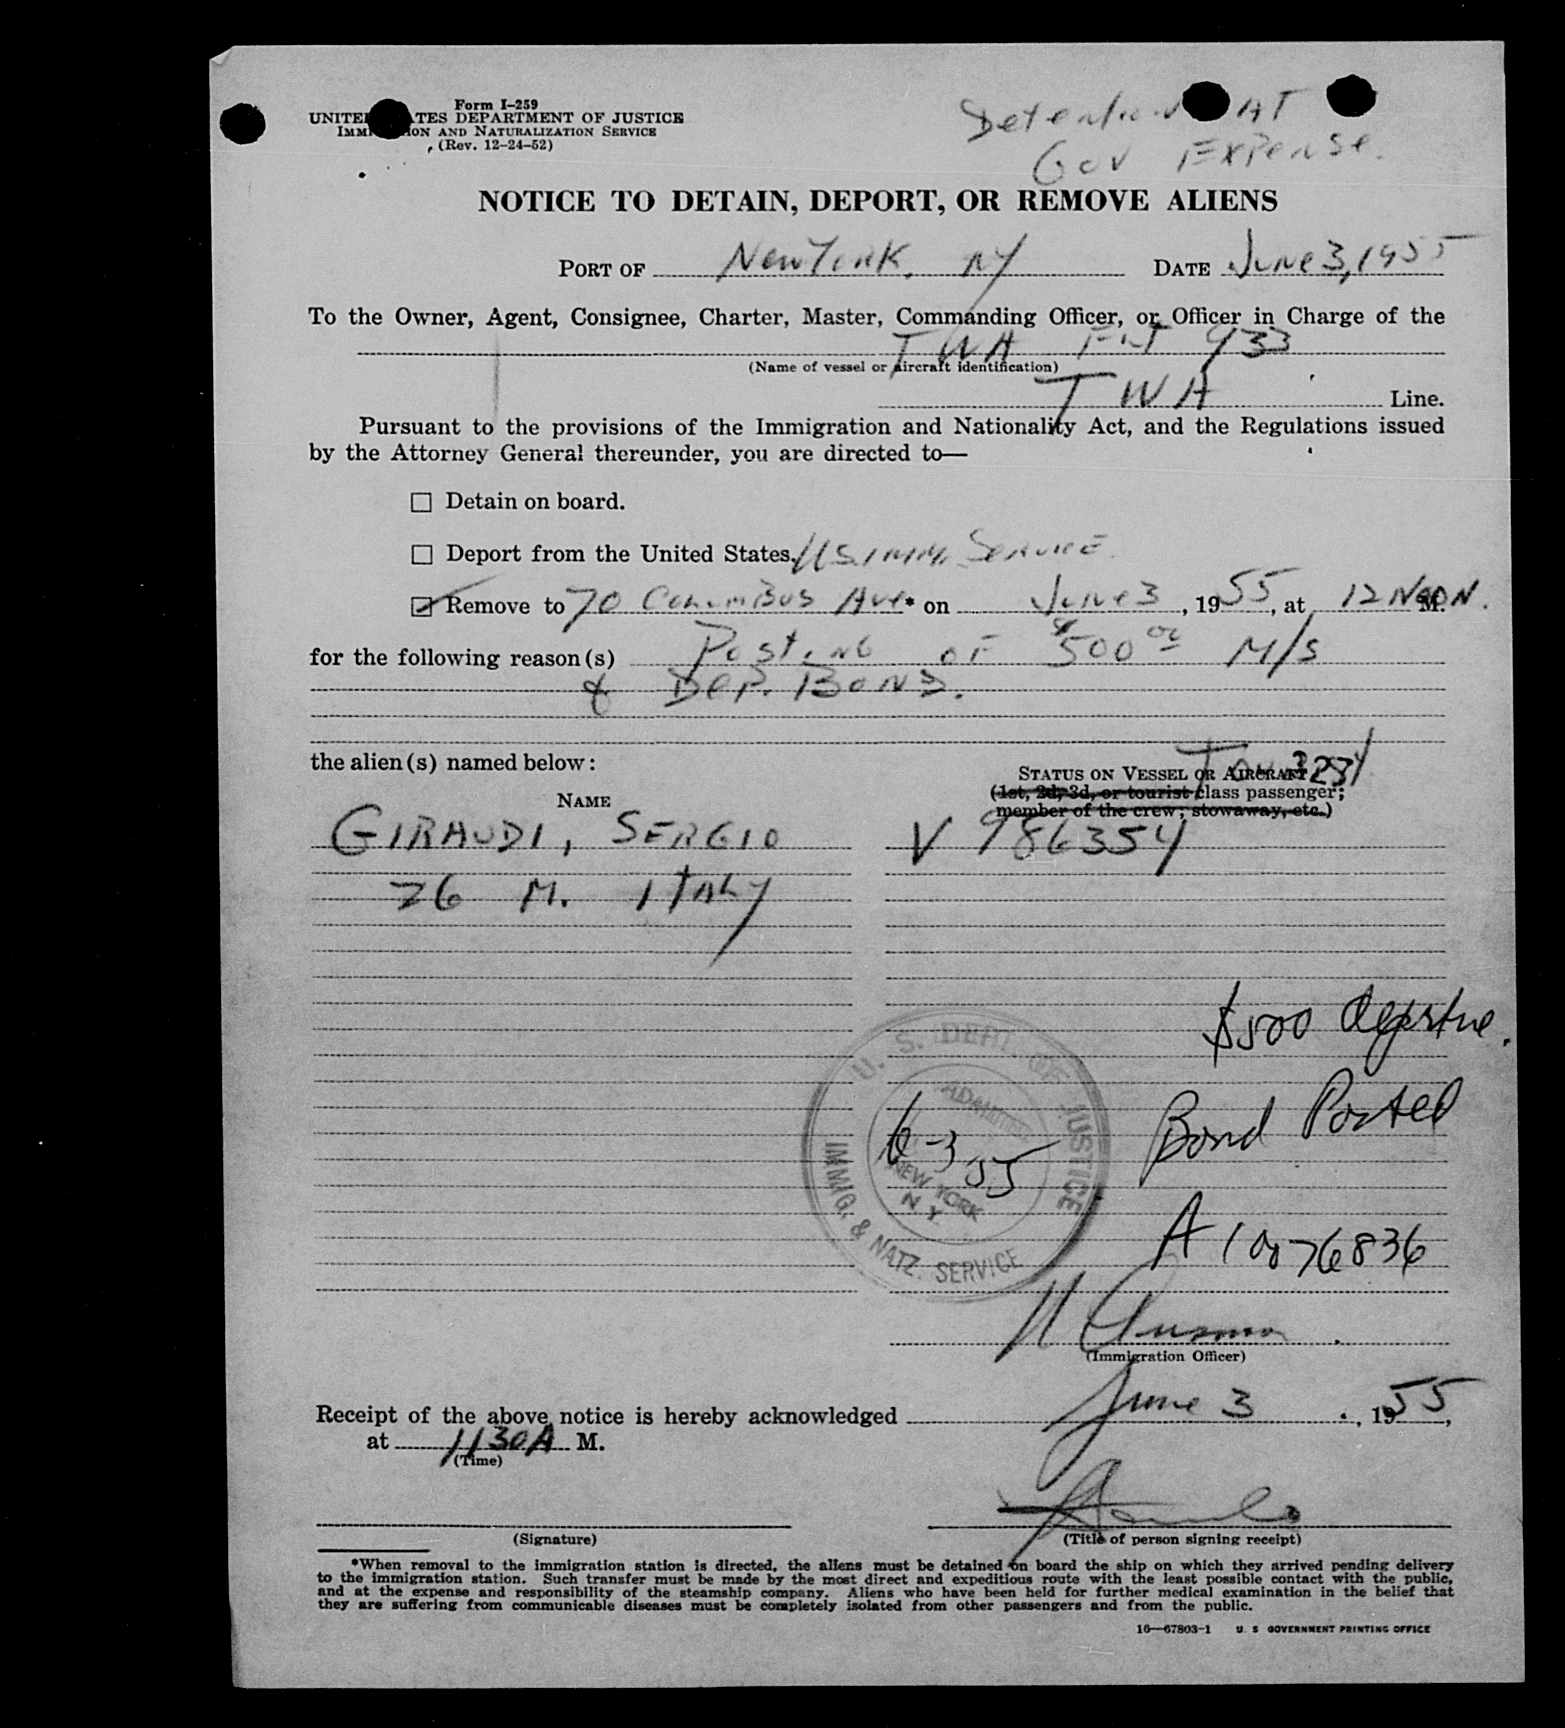 Form I-259
UNITED STATES DEPARTMENT OF JUSTICE
IMMIGRATION AND NATURALIZATION SERVICE
(Rev. 12-24-52)
Detention AT
Gov Expense.
NOTICE TO DETAIN, DEPORT, OR REMOVE ALIENS
PORT OF New York, NY DATE June 3, 1955
To the Owner, Agent, Consignee, Charter, Master, Commanding Officer, or Officer in Charge of the
TWA FLT 933
(Name of vessel or aircraft identification)
TWA Line.
Pursuant to the provisions of the Immigration and Nationality Act, and the Regulations issued
by the Attorney General thereunder, you are directed to—
☐ Detain on board.
☐ Deport from the United States. U.S. Imm. Service
☑ Remove to 70 Columbus Ave* on June 3, 1955, at 12 Noon M.
for the following reason(s) Posting of $500 00 M/S
& Dep. Bond.
the alien(s) named below:
STATUS ON VESSEL OR AIRCRAFT
(1st, 2d, 3d, or tourist class passenger;
member of the crew; stowaway, etc.)
NAME
GIRAUDI, SERGIO V 986354
26 M. Italy
$500 departure
Bond Posted
U. S. DEPT. OF JUSTICE
ADMITTED
6-3 55
NEW YORK
N. Y.
IMMIG. & NATZ. SERVICE
A 10076836
(Immigration Officer)
Receipt of the above notice is hereby acknowledged June 3, 1955,
at 1130 A M.
(Time)
(Signature) (Title of person signing receipt)
*When removal to the immigration station is directed, the aliens must be detained on board the ship on which they arrived pending delivery
to the immigration station. Such transfer must be made by the most direct and expeditious route with the least possible contact with the public,
and at the expense and responsibility of the steamship company. Aliens who have been held for further medical examination in the belief that
they are suffering from communicable diseases must be completely isolated from other passengers and from the public.
16—67803-1 U. S. GOVERNMENT PRINTING OFFICE